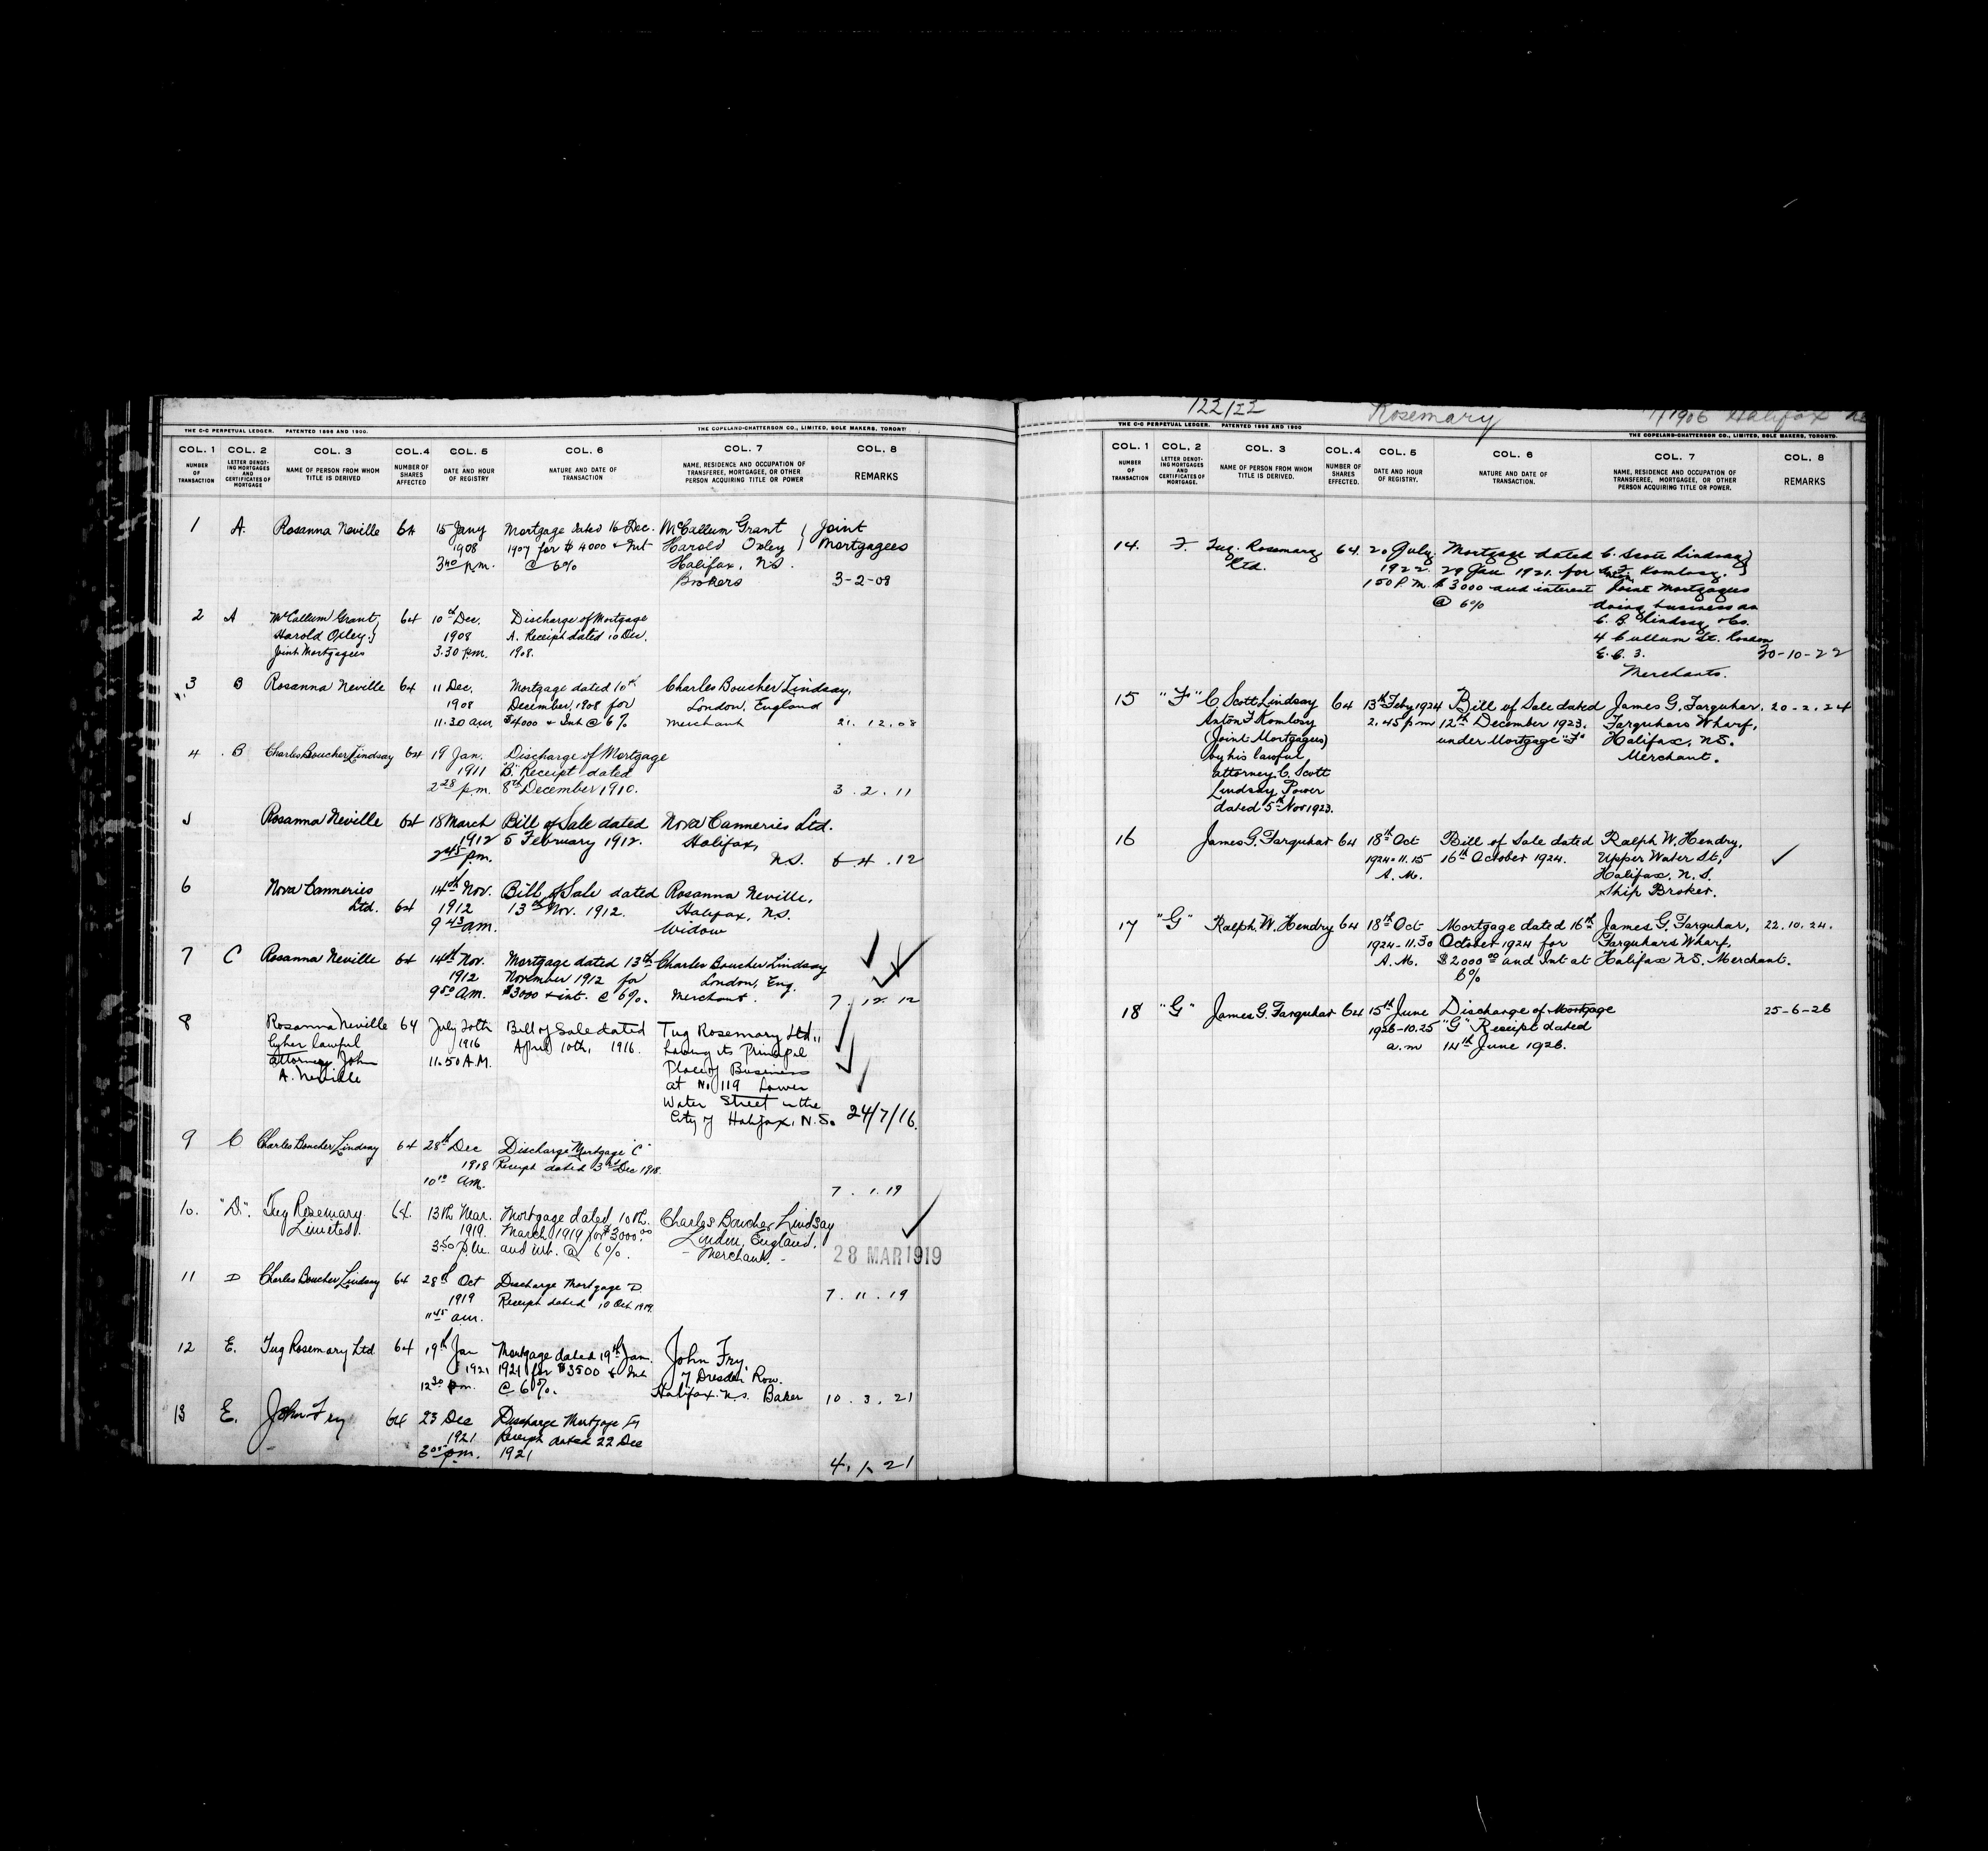 THE C-C PERPETUAL LEDGER. PATENTED 1896 AND 1900. THE COPELAND-CHATTERSON CO., LIMITED, SOLE MAKERS, TORONT
COL. 1 COL. 2 COL. 3 COL. 4 COL. 5 COL. 6 COL. 7 COL. 8
NUMBER OF TRANSACTION
LETTER DENOT-ING MORTGAGES AND CERTIFICATES OF MORTGAGE
NAME OF PERSON FROM WHOM TITLE IS DERIVED
NUMBER OF SHARES AFFECTED
DATE AND HOUR OF REGISTRY
NATURE AND DATE OF TRANSACTION
NAME, RESIDENCE AND OCCUPATION OF TRANSFEREE, MORTGAGEE, OR OTHER PERSON ACQUIRING TITLE OR POWER
REMARKS
1 A. Rosanna Neville 64 15 Jany Mortgage dated 16 Dec. McCallum Grant } Joint
1908 1907 for $4000 + Int Harold Oxley } Mortgagees
3.40 p.m. @ 6% Halifax, N.S.
Brokers 3-2-08
2 A McCallum Grant, 64 10th Dec. Discharge of Mortgage
Harold Oxley.} 1908 A. Receipt dated 10 Dec.
Joint Mortgagees 3.30 p.m. 1908.
3 B Rosanna Neville 64 11 Dec. Mortgage dated 10th Charles Boucher Lindsay,
1908 December, 1908 for London, England
11.30 am $4000 + Int @ 6% Merchant 21. 12. 08
4 B Charles Boucher Lindsay 64 19 Jan. Discharge of Mortgage
1911 "B". Receipt dated
2 28 p.m. 8th December 1910. 3. 2. 11
5 Rosanna Neville 64 18 March Bill of Sale dated Nova Canneries Ltd.
1912 5 February 1912. Halifax,
2 45 p.m. N.S. 6 4. 12
6 Nova Canneries 14th Nov. Bill of Sale dated Rosanna Neville,
Ltd. 64 1912 13th Nov. 1912. Halifax, N.S.
9 43 a.m. Widow
7 C Rosanna Neville 64 14th Nov. Mortgage dated 13th Charles Boucher Lindsay
1912 November 1912 for London, Eng.
9 50 A.M. $3000 + int. @ 6%. Merchant. 7. 12. 12
8 Rosanna Neville 64 July 20th Bill of Sale dated Tug Rosemary Ltd.,
by her lawful 1916 April 10th, 1916. having its Principal
attorney John 11.50 A.M. Place of Business
A. Neville at No 119 Lower
Water Street in the
City of Halifax, N.S. 24/7/16.
9 C Charles Boucher Lindsay 64 28th Dec Discharge Mortgage "C"
1918 Receipt dated 3rd Dec 1918.
10 10 am. 7. 1. 19
10. "D". Tug Rosemary 64. 13th Mar. Mortgage dated 10th. Charles Boucher Lindsay
Limited. 1919. March 1919 for $3000.00 London, England,
3.50 p.m. and int. @ 6%. - Merchant. - 28 MAR 1919
11 D Charles Boucher Lindsay 64 28th Oct Discharge Mortgage D
1919 Receipt dated 10 Oct 1919.
11 45 am. 7. 11. 19
12 E. Tug Rosemary Ltd 64 19th Jan Mortgage dated 19th Jan. John Fry,
1921 1921 for $3500 & Int 7 Dresden Row.
12 30 p.m. @ 6%. Halifax. N.S. Baker 10. 3. 21
13 E. John Fry 64 23 Dec Discharge Mortgage E
1921 Receipt dated 22 Dec
p.m. 1921 4. 1. 21
122122 Rosemary 1906 Halifax
THE C-C PERPETUAL LEDGER. PATENTED 1896 AND 1900 THE COPELAND-CHATTERSON CO., LIMITED, SOLE MAKERS, TORONTO.
COL. 1 COL. 2 COL. 3 COL. 4 COL. 5 COL. 6 COL. 7 COL. 8
NUMBER OF TRANSACTION
LETTER DENOT-ING MORTGAGES AND CERTIFICATES OF MORTGAGE.
NAME OF PERSON FROM WHOM TITLE IS DERIVED.
NUMBER OF SHARES EFFECTED.
DATE AND HOUR OF REGISTRY.
NATURE AND DATE OF TRANSACTION.
NAME, RESIDENCE AND OCCUPATION OF TRANSFEREE, MORTGAGEE, OR OTHER PERSON ACQUIRING TITLE OR POWER.
REMARKS
14. F. Tug. Rosemary 64. 20 July. Mortgage dated C. Scott Lindsay }
Ltd. 1922. 29 Jan 1921. for Anton F. Komlosy. }
1 50 P.M. $3000 and interest Joint Mortgagees
@ 6% doing business as
C. B. Lindsay & Co.
4 Cullum St. London
E.C. 3. 30-10-22
Merchants.
15 "F" C. Scott Lindsay 64 13th Feby 1924 Bill of Sale dated James G. Farquhar, 20-2.24
Anton F Komlosy 2.45 p m 12th December 1923. Farquhars Wharf,
(Joint Mortgagees) under Mortgage "F" Halifax, N.S.
by his lawful Merchant.
attorney C. Scott
Lindsay Power
dated 5th Nov 1923.
16 James G. Farquhar 64 18th Oct Bill of Sale dated Ralph W. Hendry,
1924-11.15 16th October 1924. Upper Water St,
A.M. Halifax, N.S.
Ship Broker.
17 "G" Ralph. W. Hendry 64 18th Oct Mortgage dated 16th James G. Farquhar, 22.10.24.
1924-11.30 October 1924 for Farquhars Wharf,
A.M. $2000.00 and Int at Halifax N.S. Merchant.
6%
18 "G" James G. Farquhar 64 15th June Discharge of Mortgage 25-6-26
1926-10.25 "G" Receipt dated
a.m 14th June 1926.